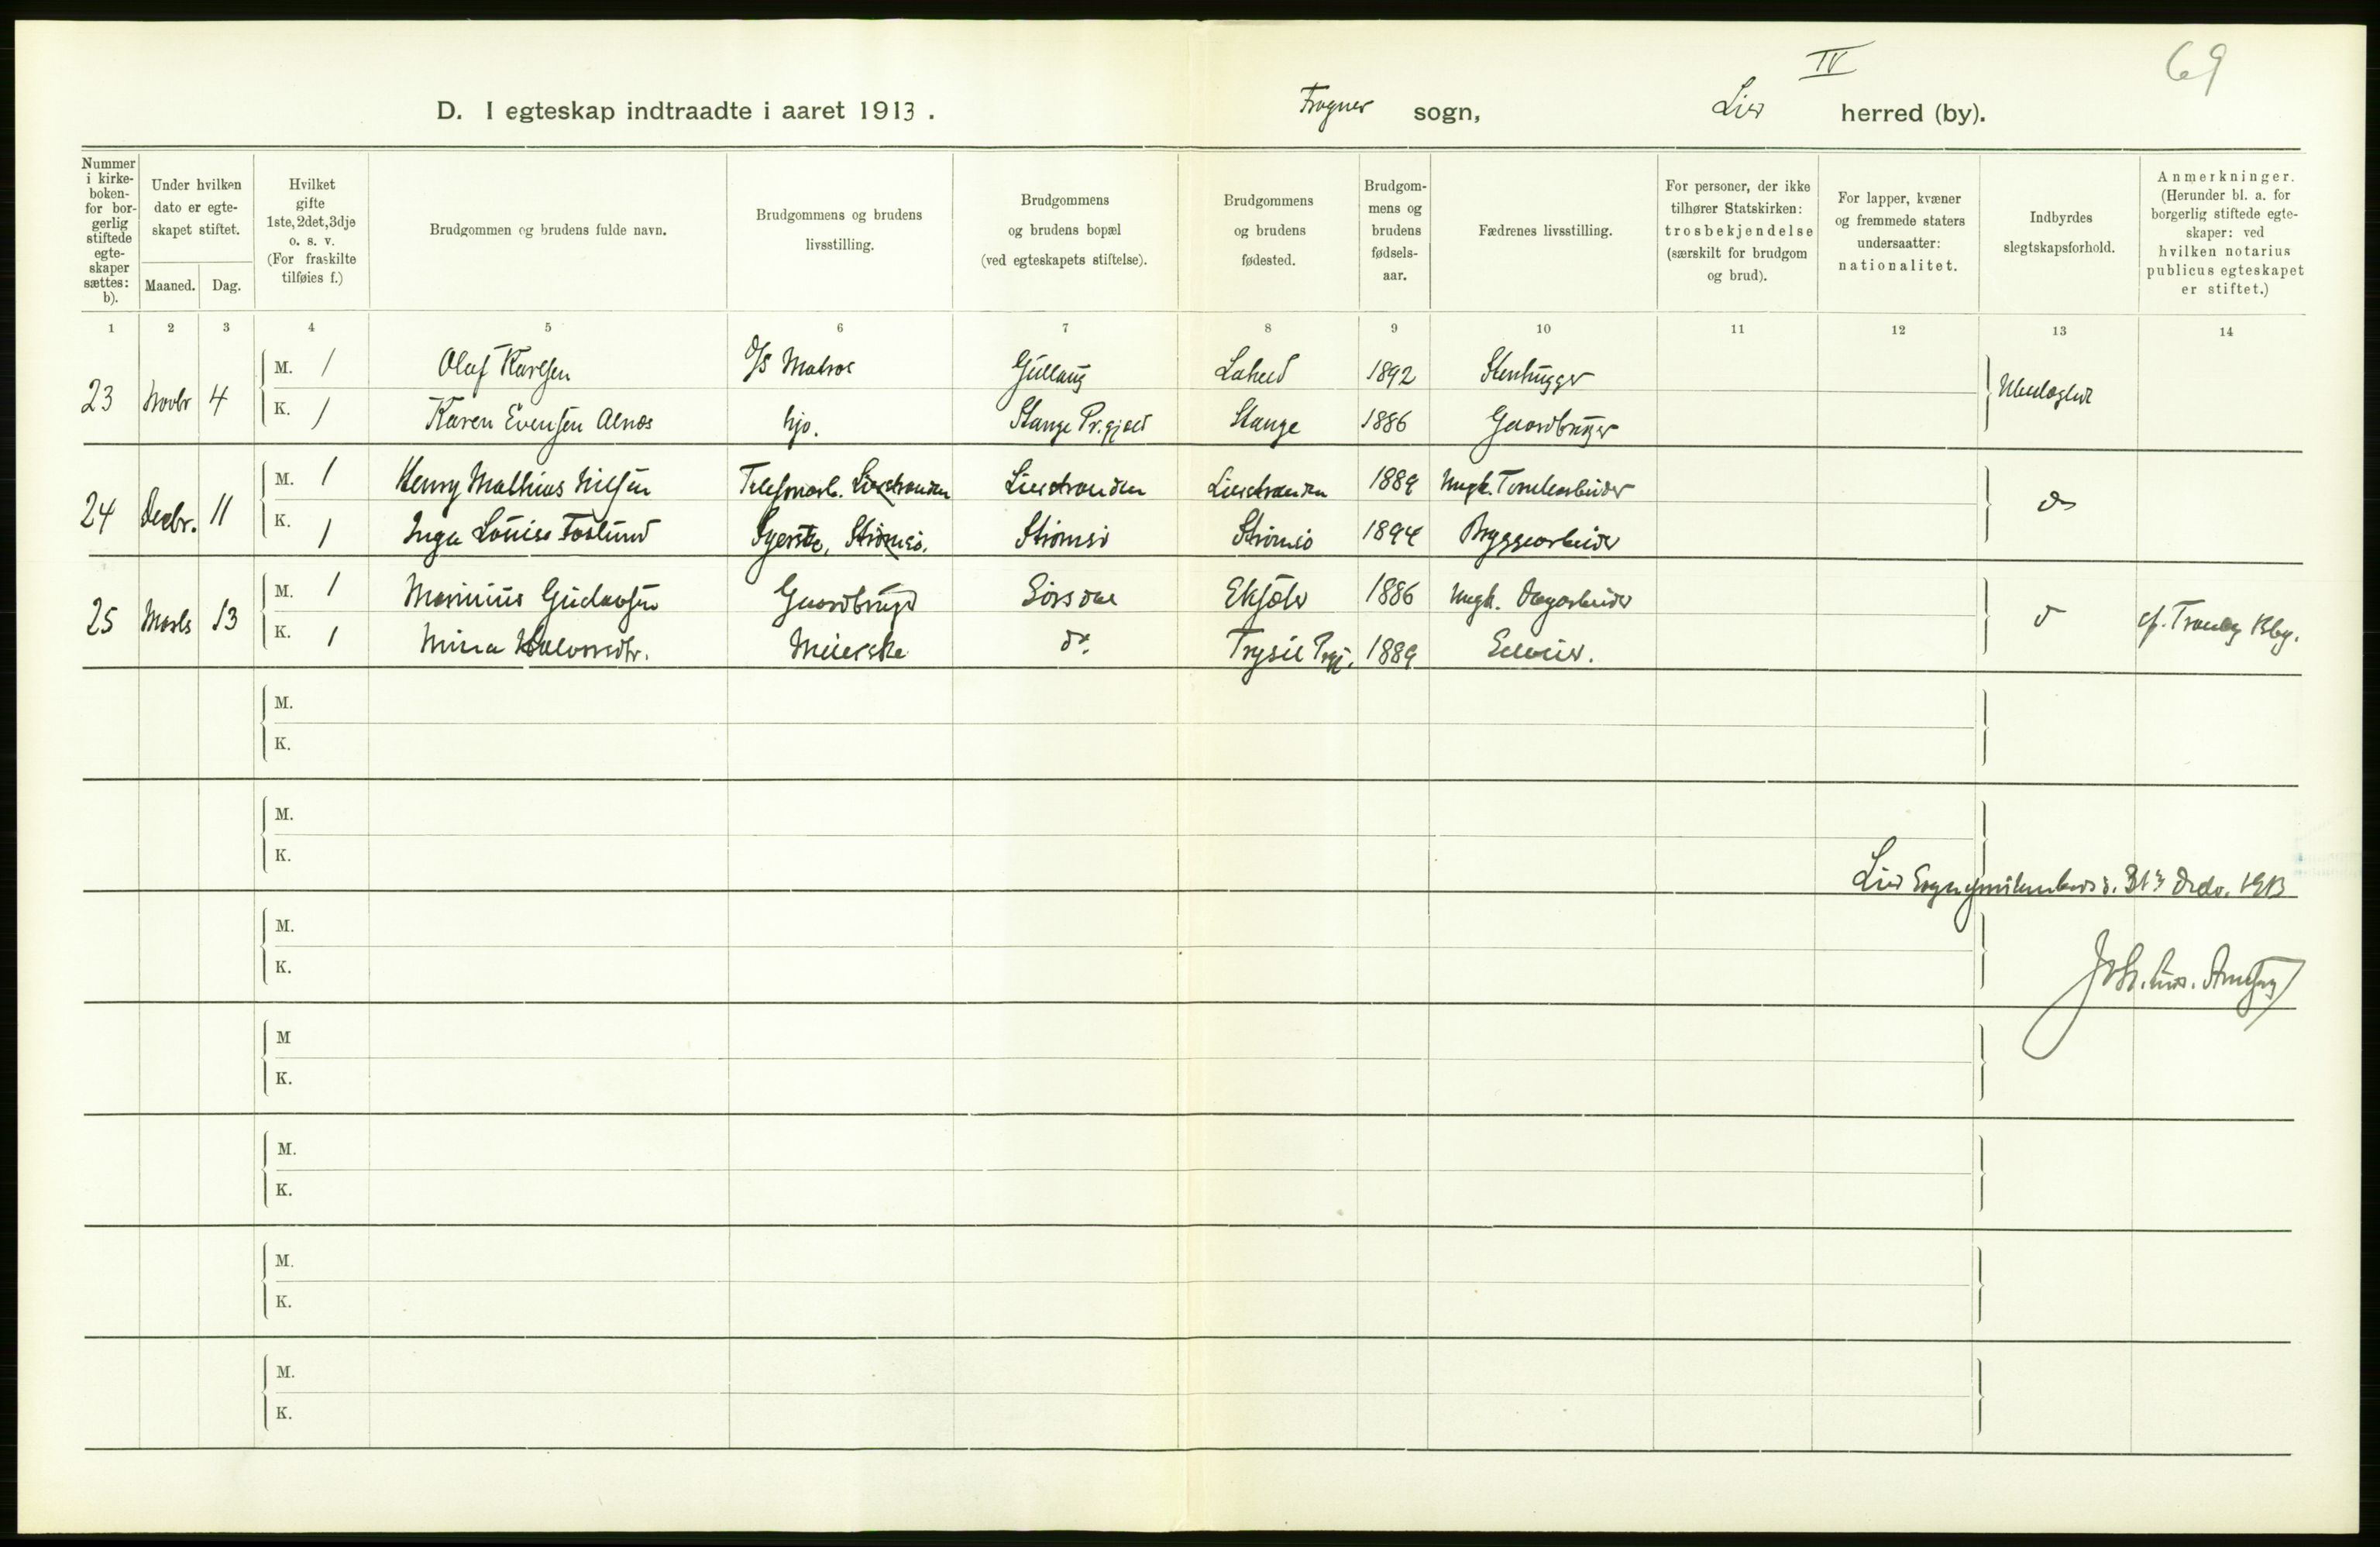 IV
69
D. I egteskap indtraadte i aaret 1913. Frogner sogn, Lier herred (by).
Nummer i kirkeboken- for borgerlig stiftede egteskaper sættes: b).
Under hvilken dato er egteskapet stiftet.
Maaned. Dag.
Hvilket gifte 1ste, 2det, 3dje o. s. v. (For fraskilte tilføies f.)
Brudgommen og brudens fulde navn.
Brudgommens og brudens livsstilling.
Brudgommens og brudens bopæl (ved egteskapets stiftelse).
Brudgommens og brudens fødested.
Brudgommens og brudens fødselsaar.
Fædrenes livsstilling.
For personer, der ikke tilhører Statskirken: trosbekjendelse (særskilt for brudgom og brud).
For lapper, kvæner og fremmede staters undersaatter: nationalitet.
Indbyrdes slegtskapsforhold.
Anmerkninger. (Herunder bl. a. for borgerlig stiftede egteskaper: ved hvilken notarius publicus egteskapet er stiftet.)
1 2 3 4 5 6 7 8 9 10 11 12 13 14
23 Novbr 4 M. 1 Olaf Karlsen Matros Gullaug 1892 Stenhugger Ubeslegtet
K. 1 Karen Evensen Alnæs hjo. Stange Pr.gjæld Stange 1886 Gaardbruger
24 Decbr. 11 M. 1 Henry Mathias Nilsen Telefonarb. Lierstranden Lierstranden Lierstranden 1889 Tomtearbeider do
K. 1 Inga Louise Foslund Syerske, Strømsø. Strømsø Strømsø 1894 Bryggearbeider
25 Marts 13 M. 1 Marinius Gustavsen Gaardbruger Sørsdal 1886 Dagarbeider do cf. Tranby Kbg.
K. 1 Mina Halvorsdtr. Meierske do. Trysil Prgj. 1889 Selveier.
M.
K.
M.
K.
Lier Sogneprestembede d. 31te Decbr. 1913
M.
K.
M
K.
M.
K.
M.
K.
M.
K.